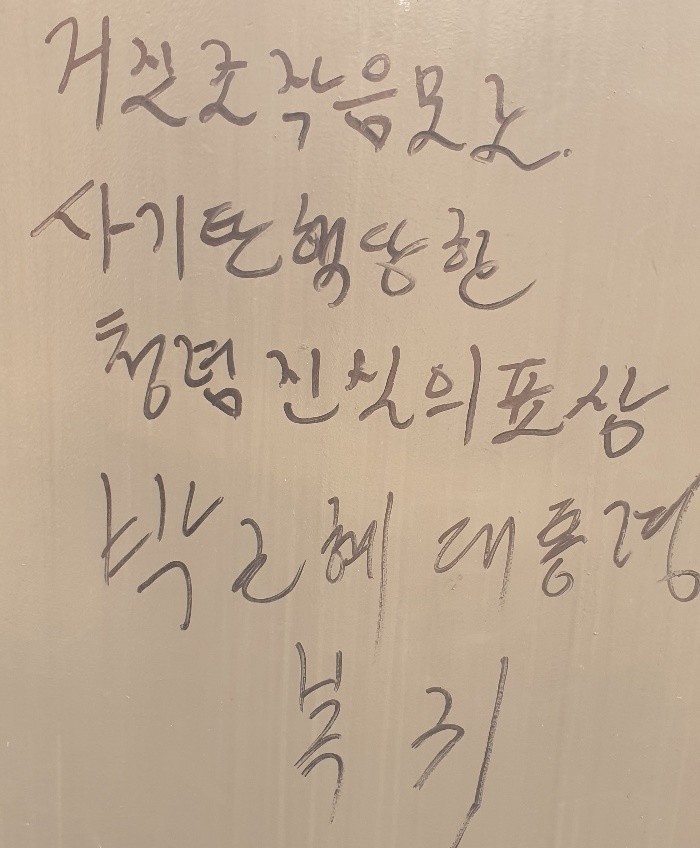 거짓조작음모로.
사기탄핵당한
청렴 진실의표상
박근혜 대통령
복귀